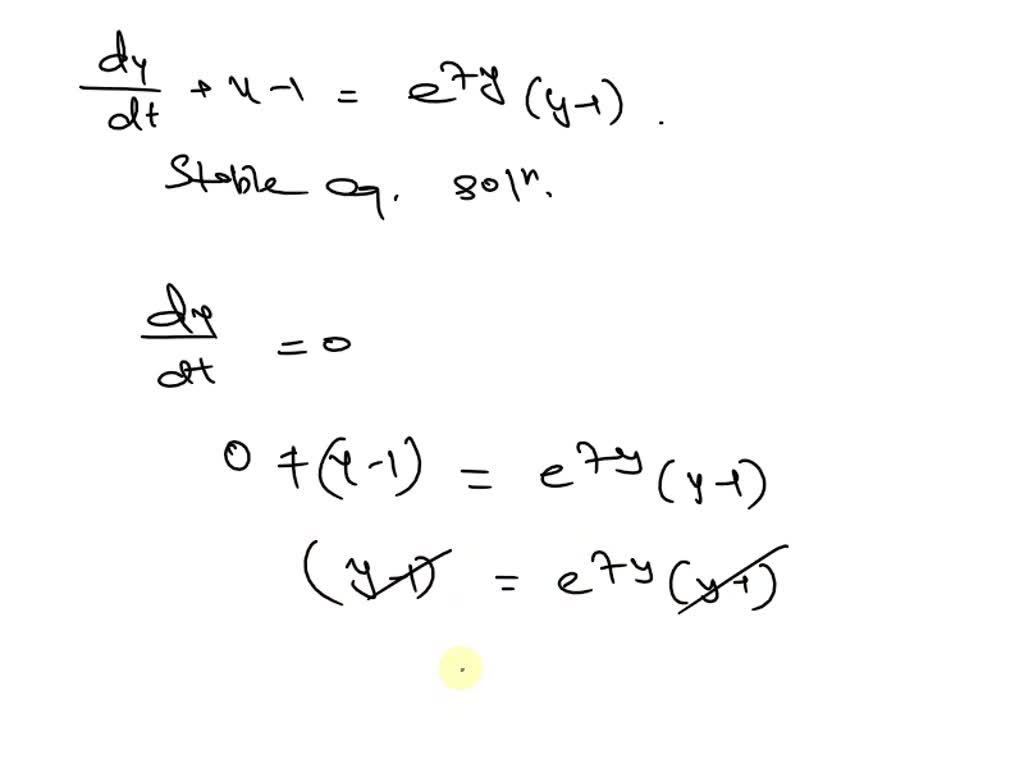 dy/dt + x - 1 = e^{7y} (y-1).
Stable eq. sol^n.
dy/dt = 0
0 + (y-1) = e^{7y} (y-1)
(y-1) = e^{7y} (y-1)